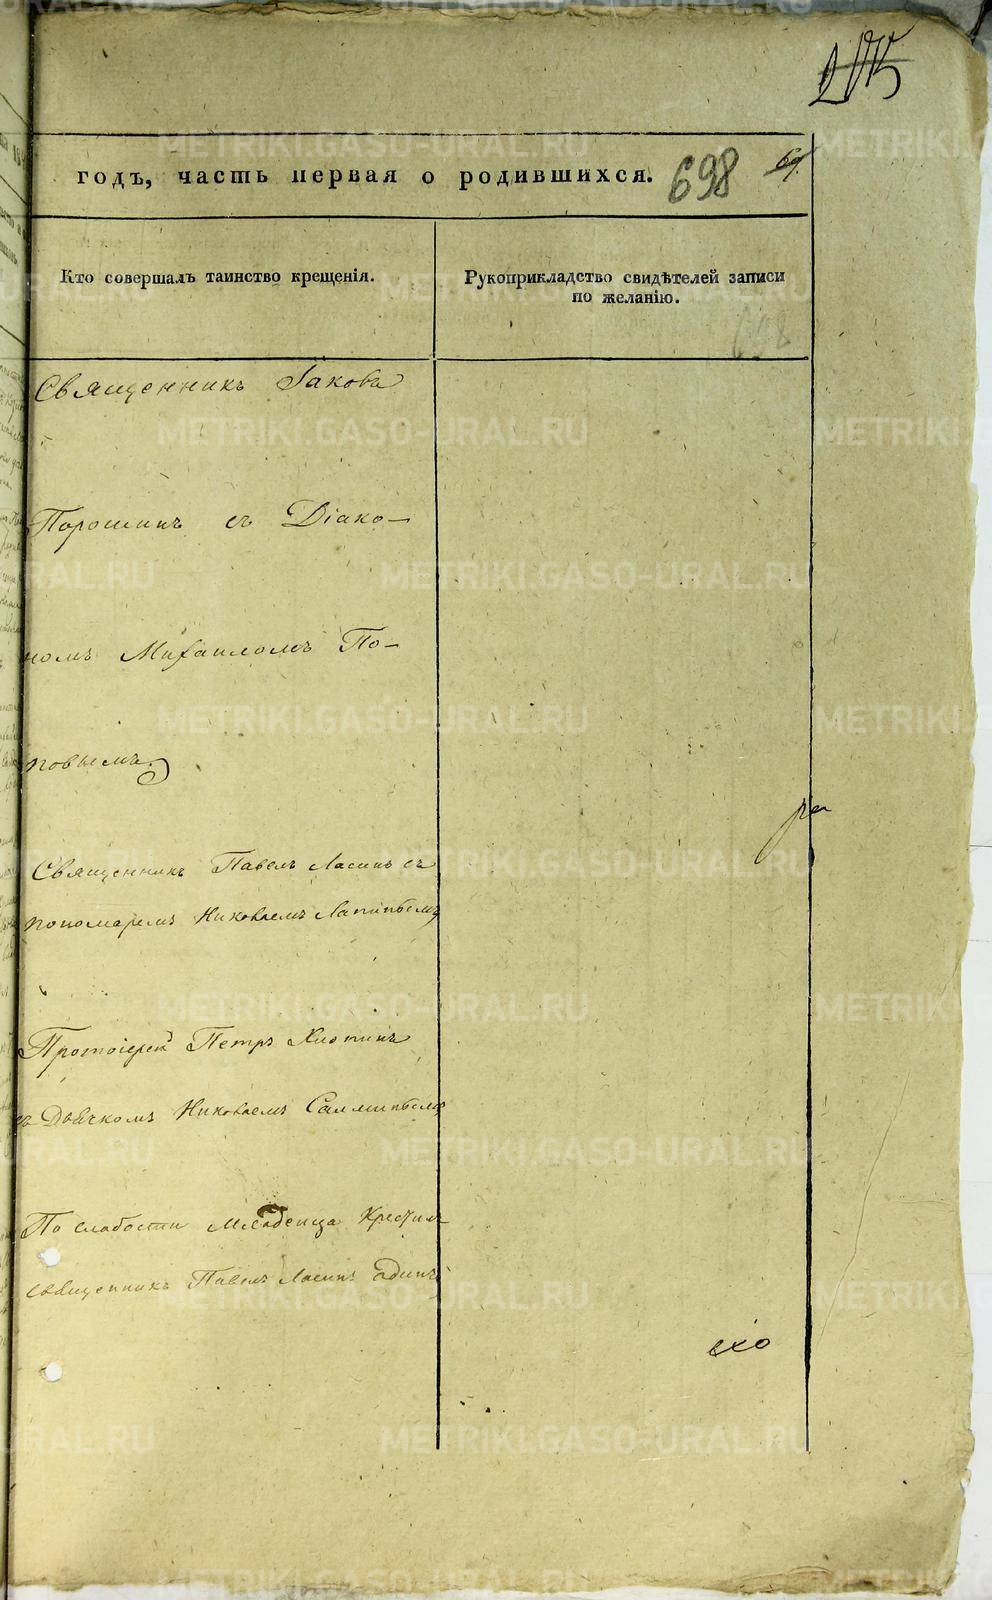 годъ, часть первая о родившихся. 698
Кто совершалъ таинство крещенія.
Рукоприкладство свидѣтелей записи
по желанію.
698
Священникъ Іаковъ
Порошинъ съ Діако-
номъ Михаиломъ По-
повымъ.
Священникъ Павелъ Ласинъ съ
пономаремъ Николаемъ
Протоіерей Петръ
съ Дьячкомъ Николаемъ
По слабости младенца Крестилъ
священникъ Павелъ Ласинъ одинъ
METRIKI.GASO-URAL.RU